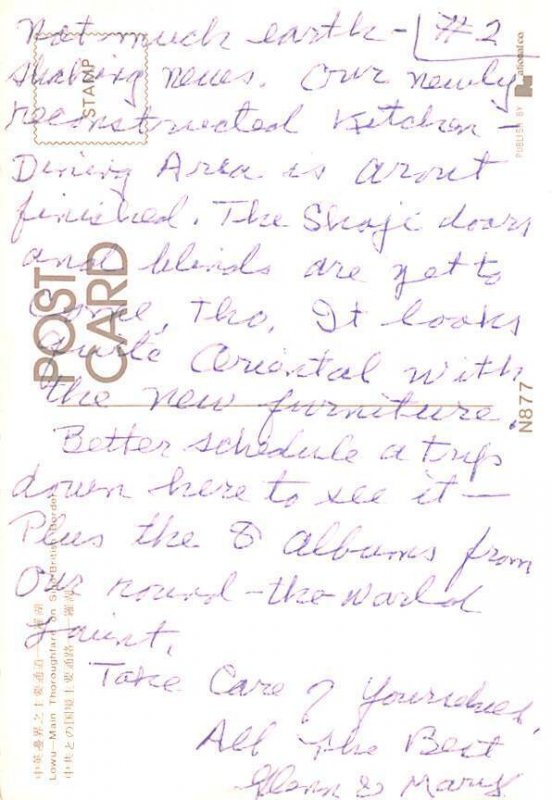 Not much earth- #2
shaking news. Our newly
reconstructed Kitchen-
Dining Area is about
finished. The Shoji doors
and blinds are yet to
come, Tho. It looks
quite Oriental with
the new furniture.
Better schedule a trip
down here to see it—
Plus the 8 albums from
our round-the-world
jaunt.
Take Care of Yourselves,
All The Best
Glenn & Mary
STAMP
POST
CARD
PUBLISH BY
N877
Lowu-Main Thoroughfare on Sino-British Border